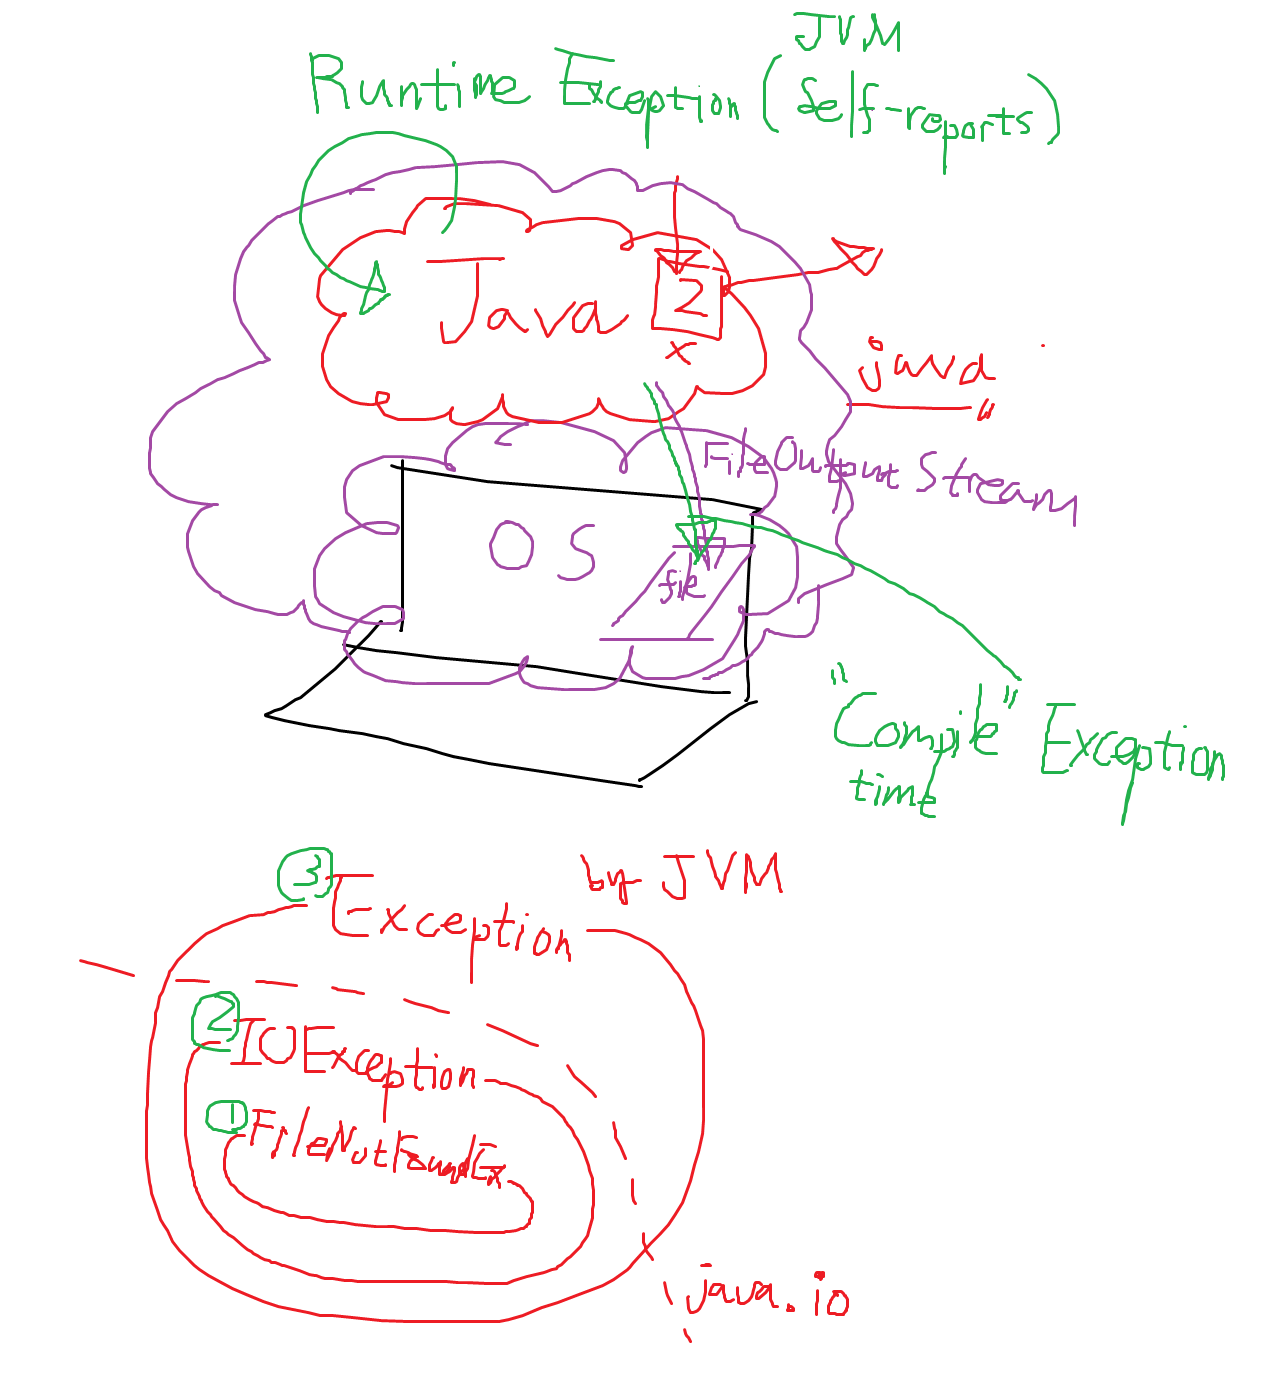 JVM
Runtime Exception (Self-reports)
Java 2
x
java
FileOutput Stream
OS
file
"Compile" Exception
time
3
Exception
by JVM
2
IOException
1
FileNotFoundEx
java.io